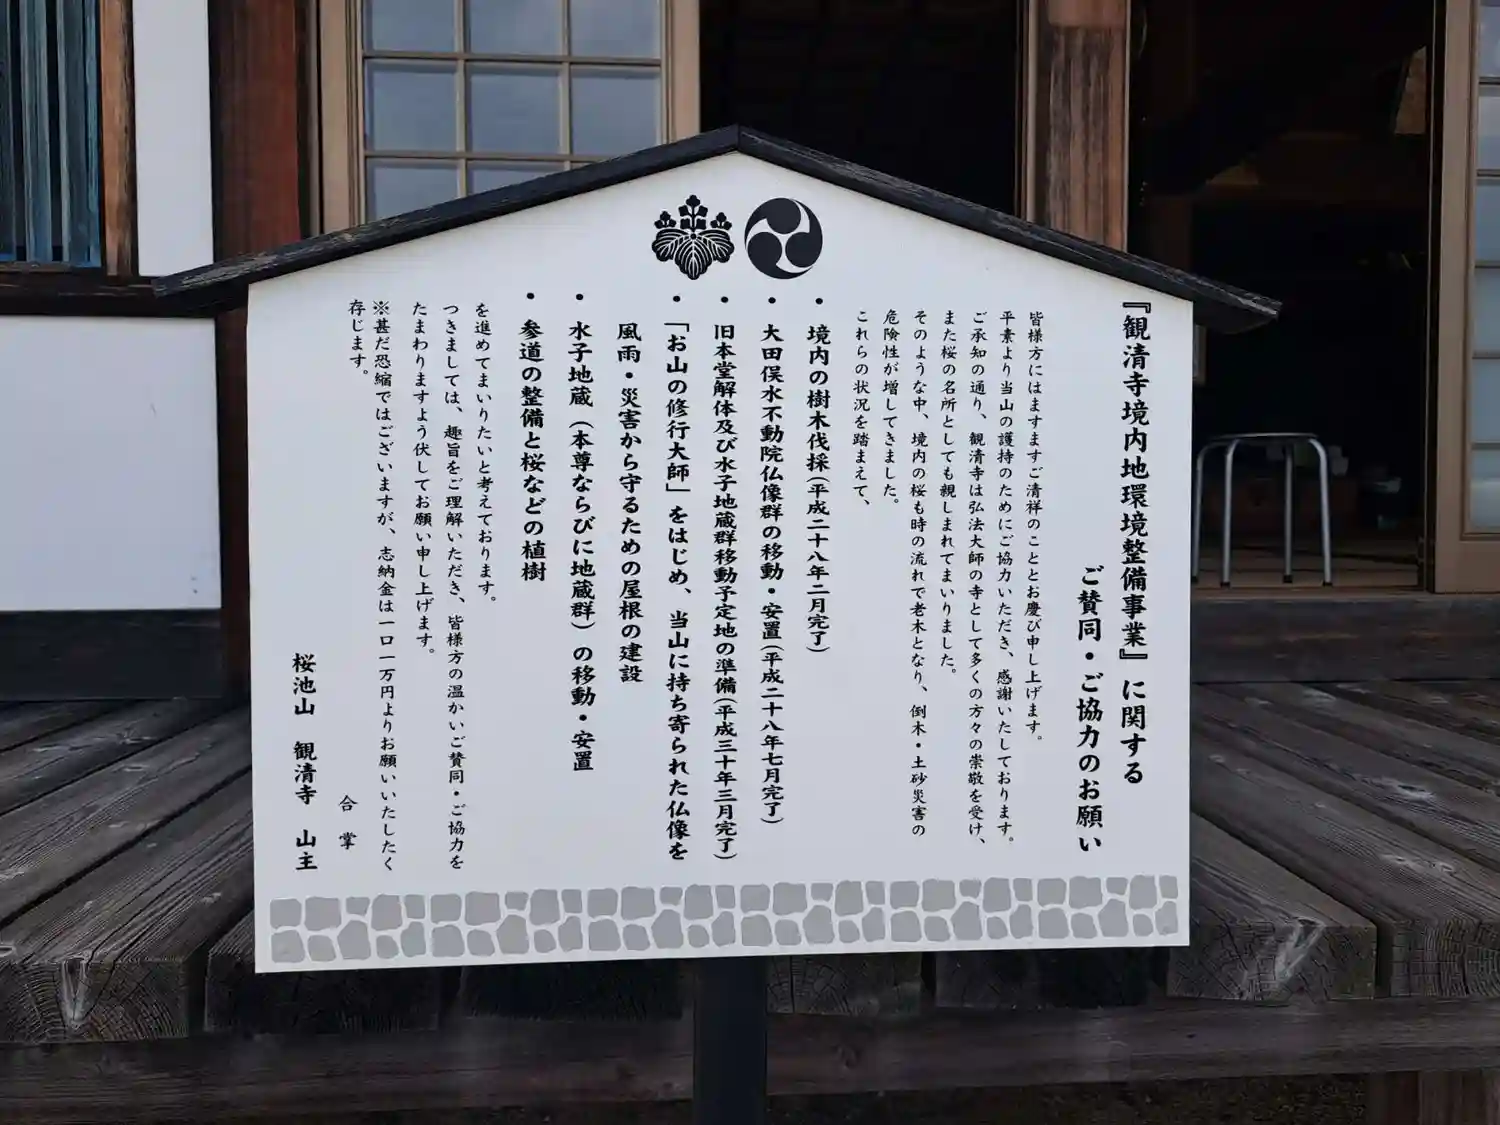 『観清寺境内地環境整備事業』に関する
ご賛同・ご協力のお願い
皆様方にはますますご清祥のこととお慶び申し上げます。
平素より当山の護持のためにご協力いただき、感謝いたしております。
ご承知の通り、観清寺は弘法大師の寺として多くの方々の崇敬を受け、
また桜の名所としても親しまれてまいりました。
そのような中、境内の桜も時の流れで老木となり、倒木・土砂災害の
危険性が増してきました。
これらの状況を踏まえて、
・境内の樹木伐採(平成二十八年二月完了)
・大田俣水不動院仏像群の移動・安置(平成二十八年七月完了)
・旧本堂解体及び水子地蔵群移動予定地の準備(平成三十年三月完了)
・「お山の修行大師」をはじめ、当山に持ち寄られた仏像を
風雨・災害から守るための屋根の建設
・水子地蔵（本尊ならびに地蔵群）の移動・安置
・参道の整備と桜などの植樹
を進めてまいりたいと考えております。
つきましては、趣旨をご理解いただき、皆様方の温かいご賛同・ご協力を
たまわりますよう伏してお願い申し上げます。
※甚だ恐縮ではございますが、志納金は一口一万円よりお願いいたしたく
存じます。
合掌
桜池山 観清寺 山主